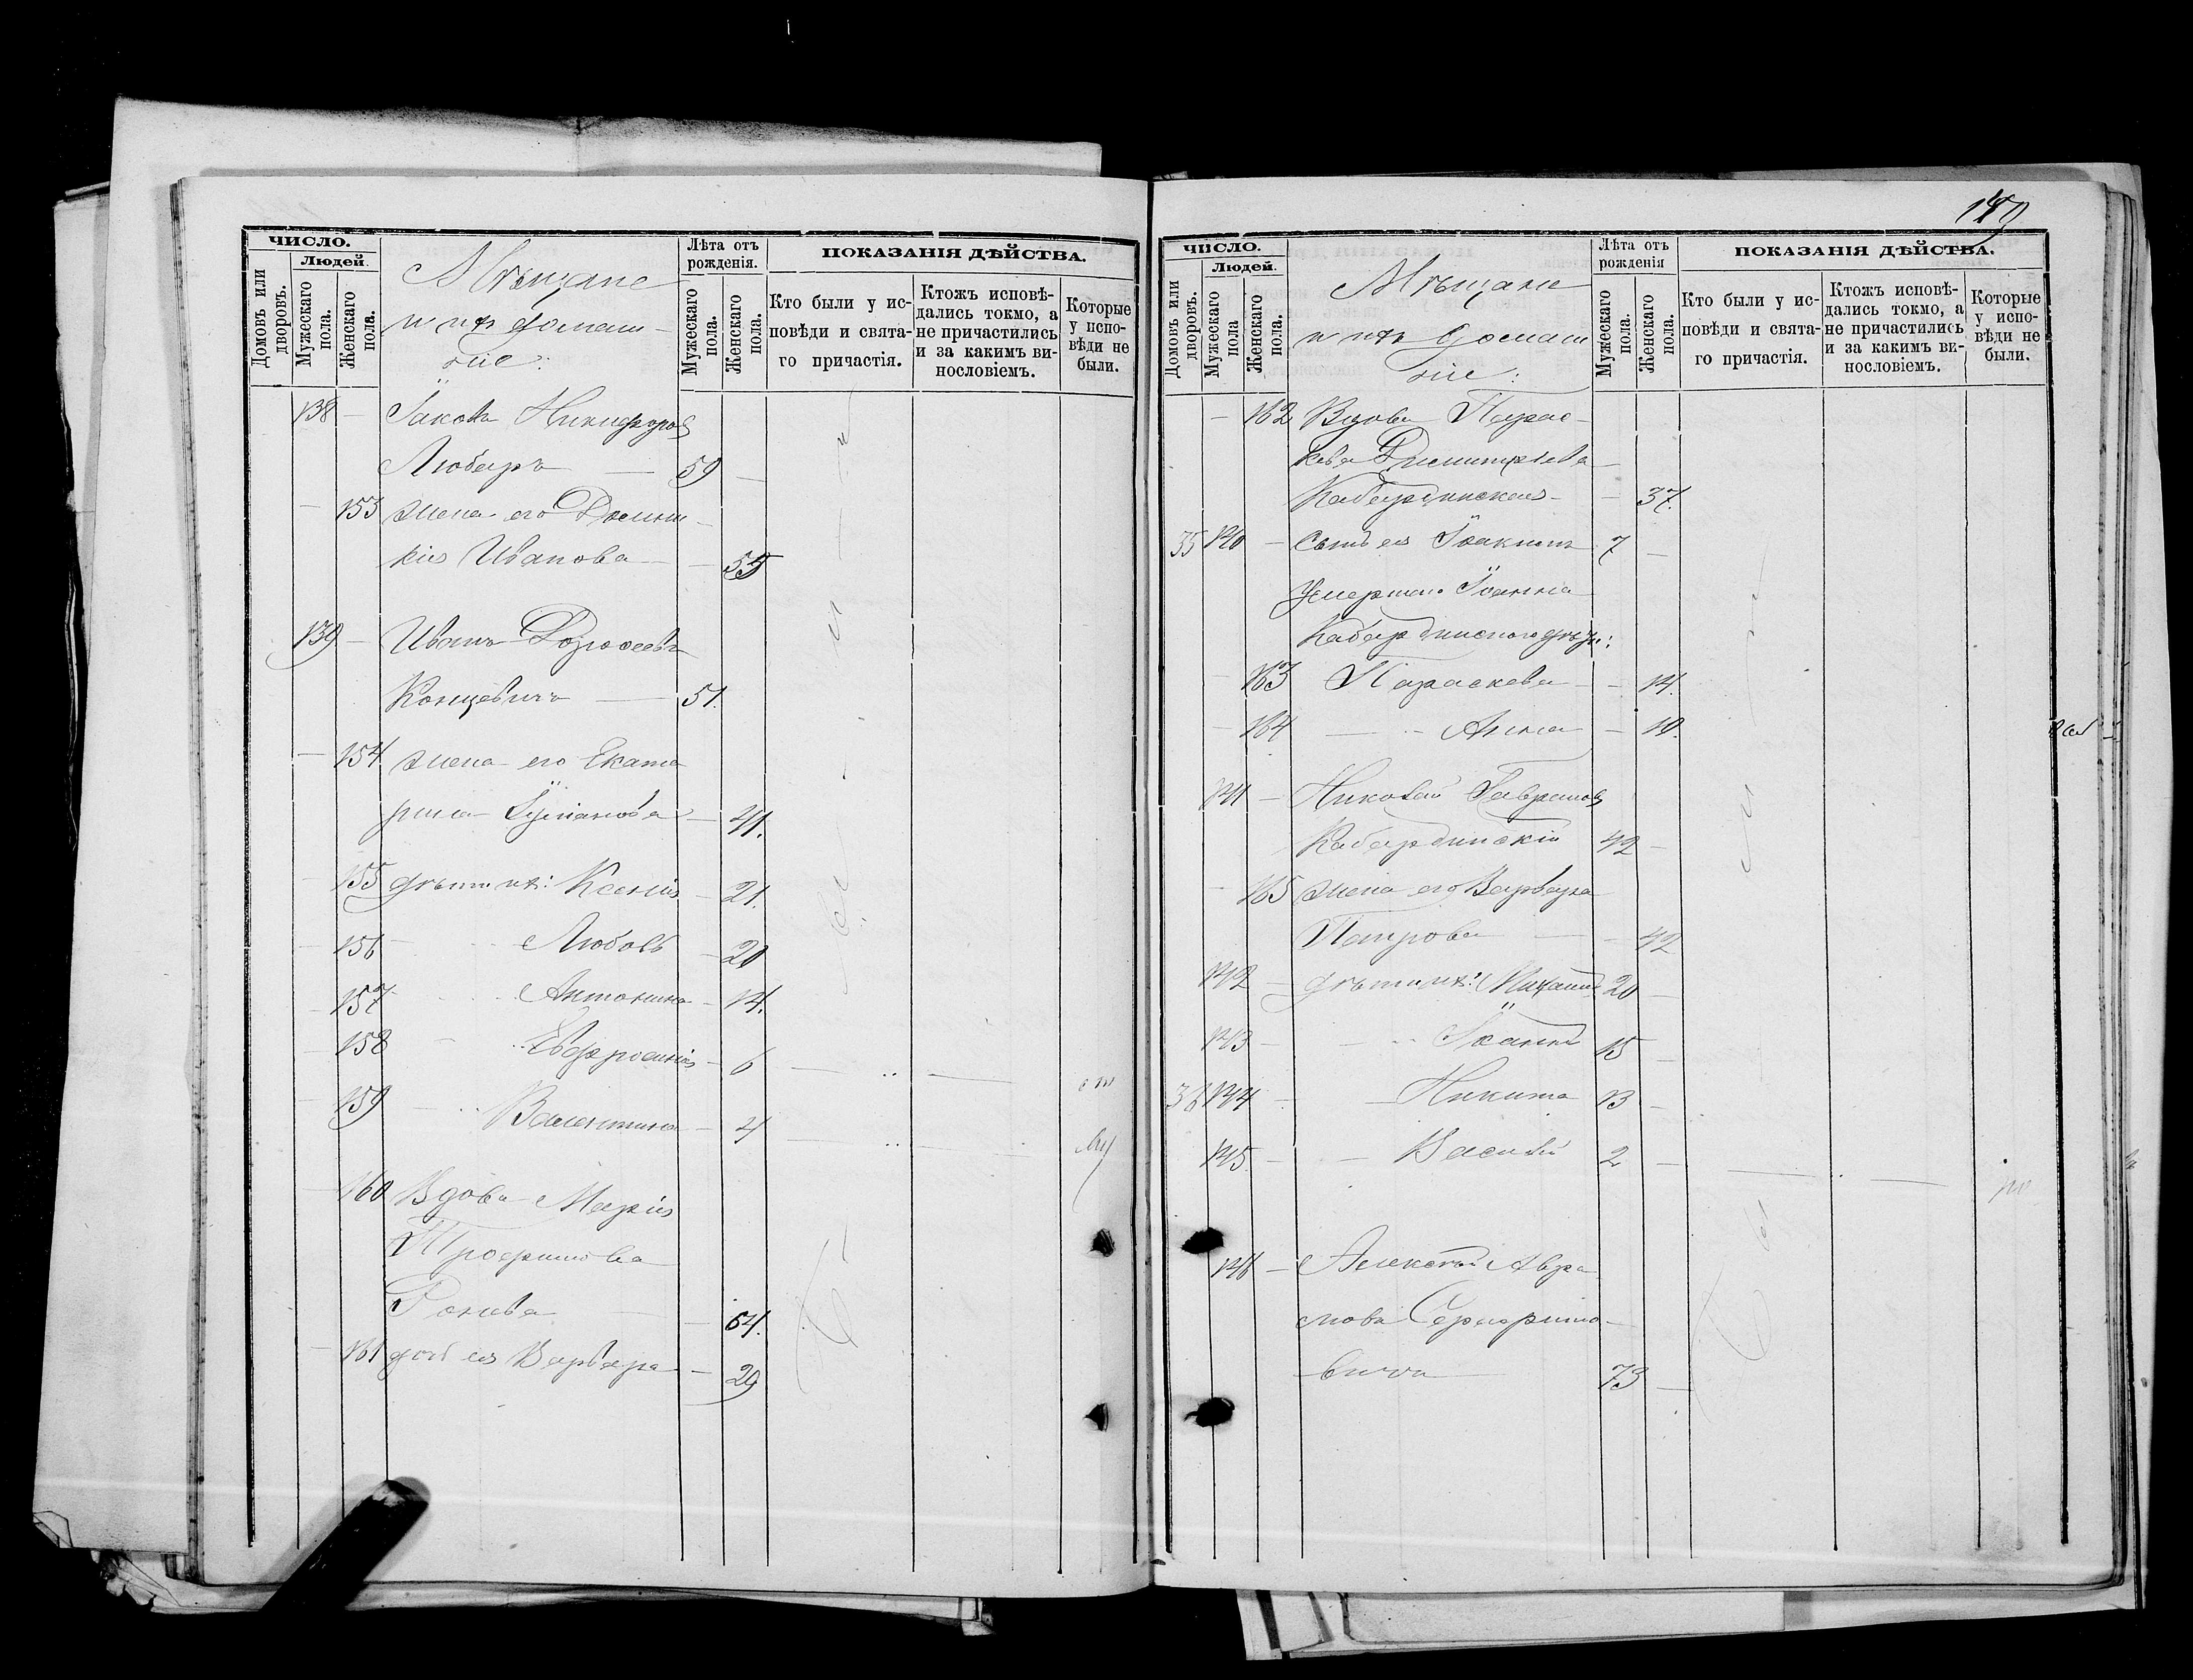 ЧИСЛО.
Людей.
Домовъ или дворовъ.
Мужескаго пола.
Женскаго пола.
Мѣщане
и ихъ домаш-
ніе:
Лѣта отъ рожденія.
Мужескаго пола.
Женскаго пола.
ПОКАЗАНІЯ ДѢЙСТВА.
Кто были у ис-
повѣди и свята-
го причастія.
Ктожъ исповѣ-
дались токмо, а
не причастились
и за какимъ ви-
нословіемъ.
Которые
у испо-
вѣди не
были.
138 — Іаковъ Никифоровъ
Любаръ — 59 —
— 153 жена его
Иванова — — 55
139 — Иванъ
Концевичъ — 51.
— 154 жена его Екате
рина — 41.
— 155 дѣти ихъ: Ксенія — 21.
— 156 Любовь — 20
— 157 Антонина — 14.
— 158 Евфросинія — 6
— 159 Валентина — 4
— 160 Вдова Марія
Трофимова
— 64.
— 161 дочь ея Варвара — 29
149
ЧИСЛО.
Людей.
Домовъ или дворовъ.
Мужескаго пола
Женскаго пола.
Мѣщане
и ихъ домаш
ніе:
Лѣта отъ рожденія
Мужескаго пола.
Женскаго пола.
ПОКАЗАНІЯ ДѢЙСТВА.
Кто были у ис-
повѣди и свята-
го причастія.
Ктожъ исповѣ-
дались токмо, а
не причастились
и за какимъ ви-
нословіемъ.
Которые
у испо-
вѣди не
были.
— 162 Вдова Парас-
кева Димитріева
Кабардинская — — 37.
35 140 — Сынъ ея Іоакимъ 7 —
Умершаго Іоанна
Кабардинскаго дѣти:
— 163 Параскева — — 14.
— 164 — Анна — 10.
141 — Николай Гавриловъ
Кабардинскій 42 —
— 165 жена его Варвара
Петрова — — 42
142 — дѣти ихъ: Михаилъ 20 —
143 — Іоаннъ 15 —
36 144 — Никита 13 —
145 — Василій 2 —
146 — Алексѣй Авра
мовъ
вичъ 73 —